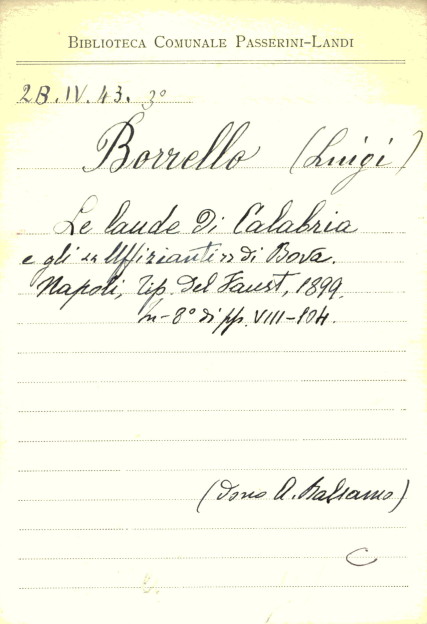 BIBLIOTECA COMUNALE PASSERINI-LANDI
2B.IV.43. 3º
Borrello (Luigi)
Le laude di Calabria
e gli «Uffizianti» di Bova.
Napoli, Tip. del Faust, 1899.
in-8º di pp. VIII-104.
(dono A. Balsamo)
C